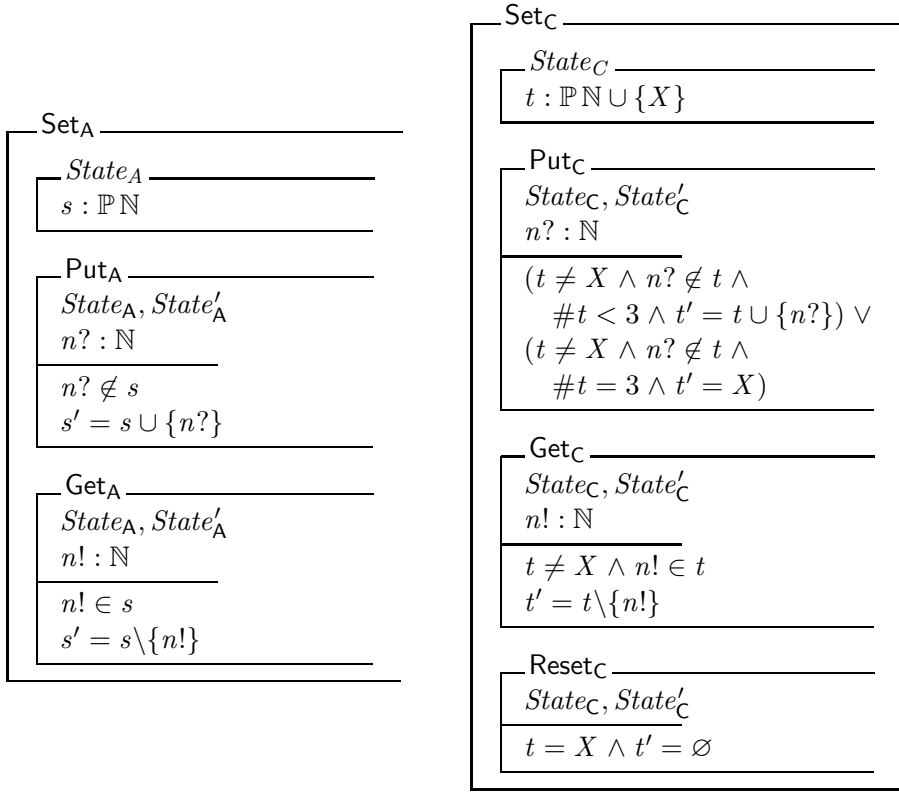 Set_A
State_A
s : ℙ ℕ
Put_A
State_A, State′_A
n? : ℕ
n? ∉ s
s′ = s ∪ {n?}
Get_A
State_A, State′_A
n! : ℕ
n! ∈ s
s′ = s\{n!}
Set_C
State_C
t : ℙ ℕ ∪ {X}
Put_C
State_C, State′_C
n? : ℕ
(t ≠ X ∧ n? ∉ t ∧
#t < 3 ∧ t′ = t ∪ {n?}) ∨
(t ≠ X ∧ n? ∉ t ∧
#t = 3 ∧ t′ = X)
Get_C
State_C, State′_C
n! : ℕ
t ≠ X ∧ n! ∈ t
t′ = t\{n!}
Reset_C
State_C, State′_C
t = X ∧ t′ = ∅